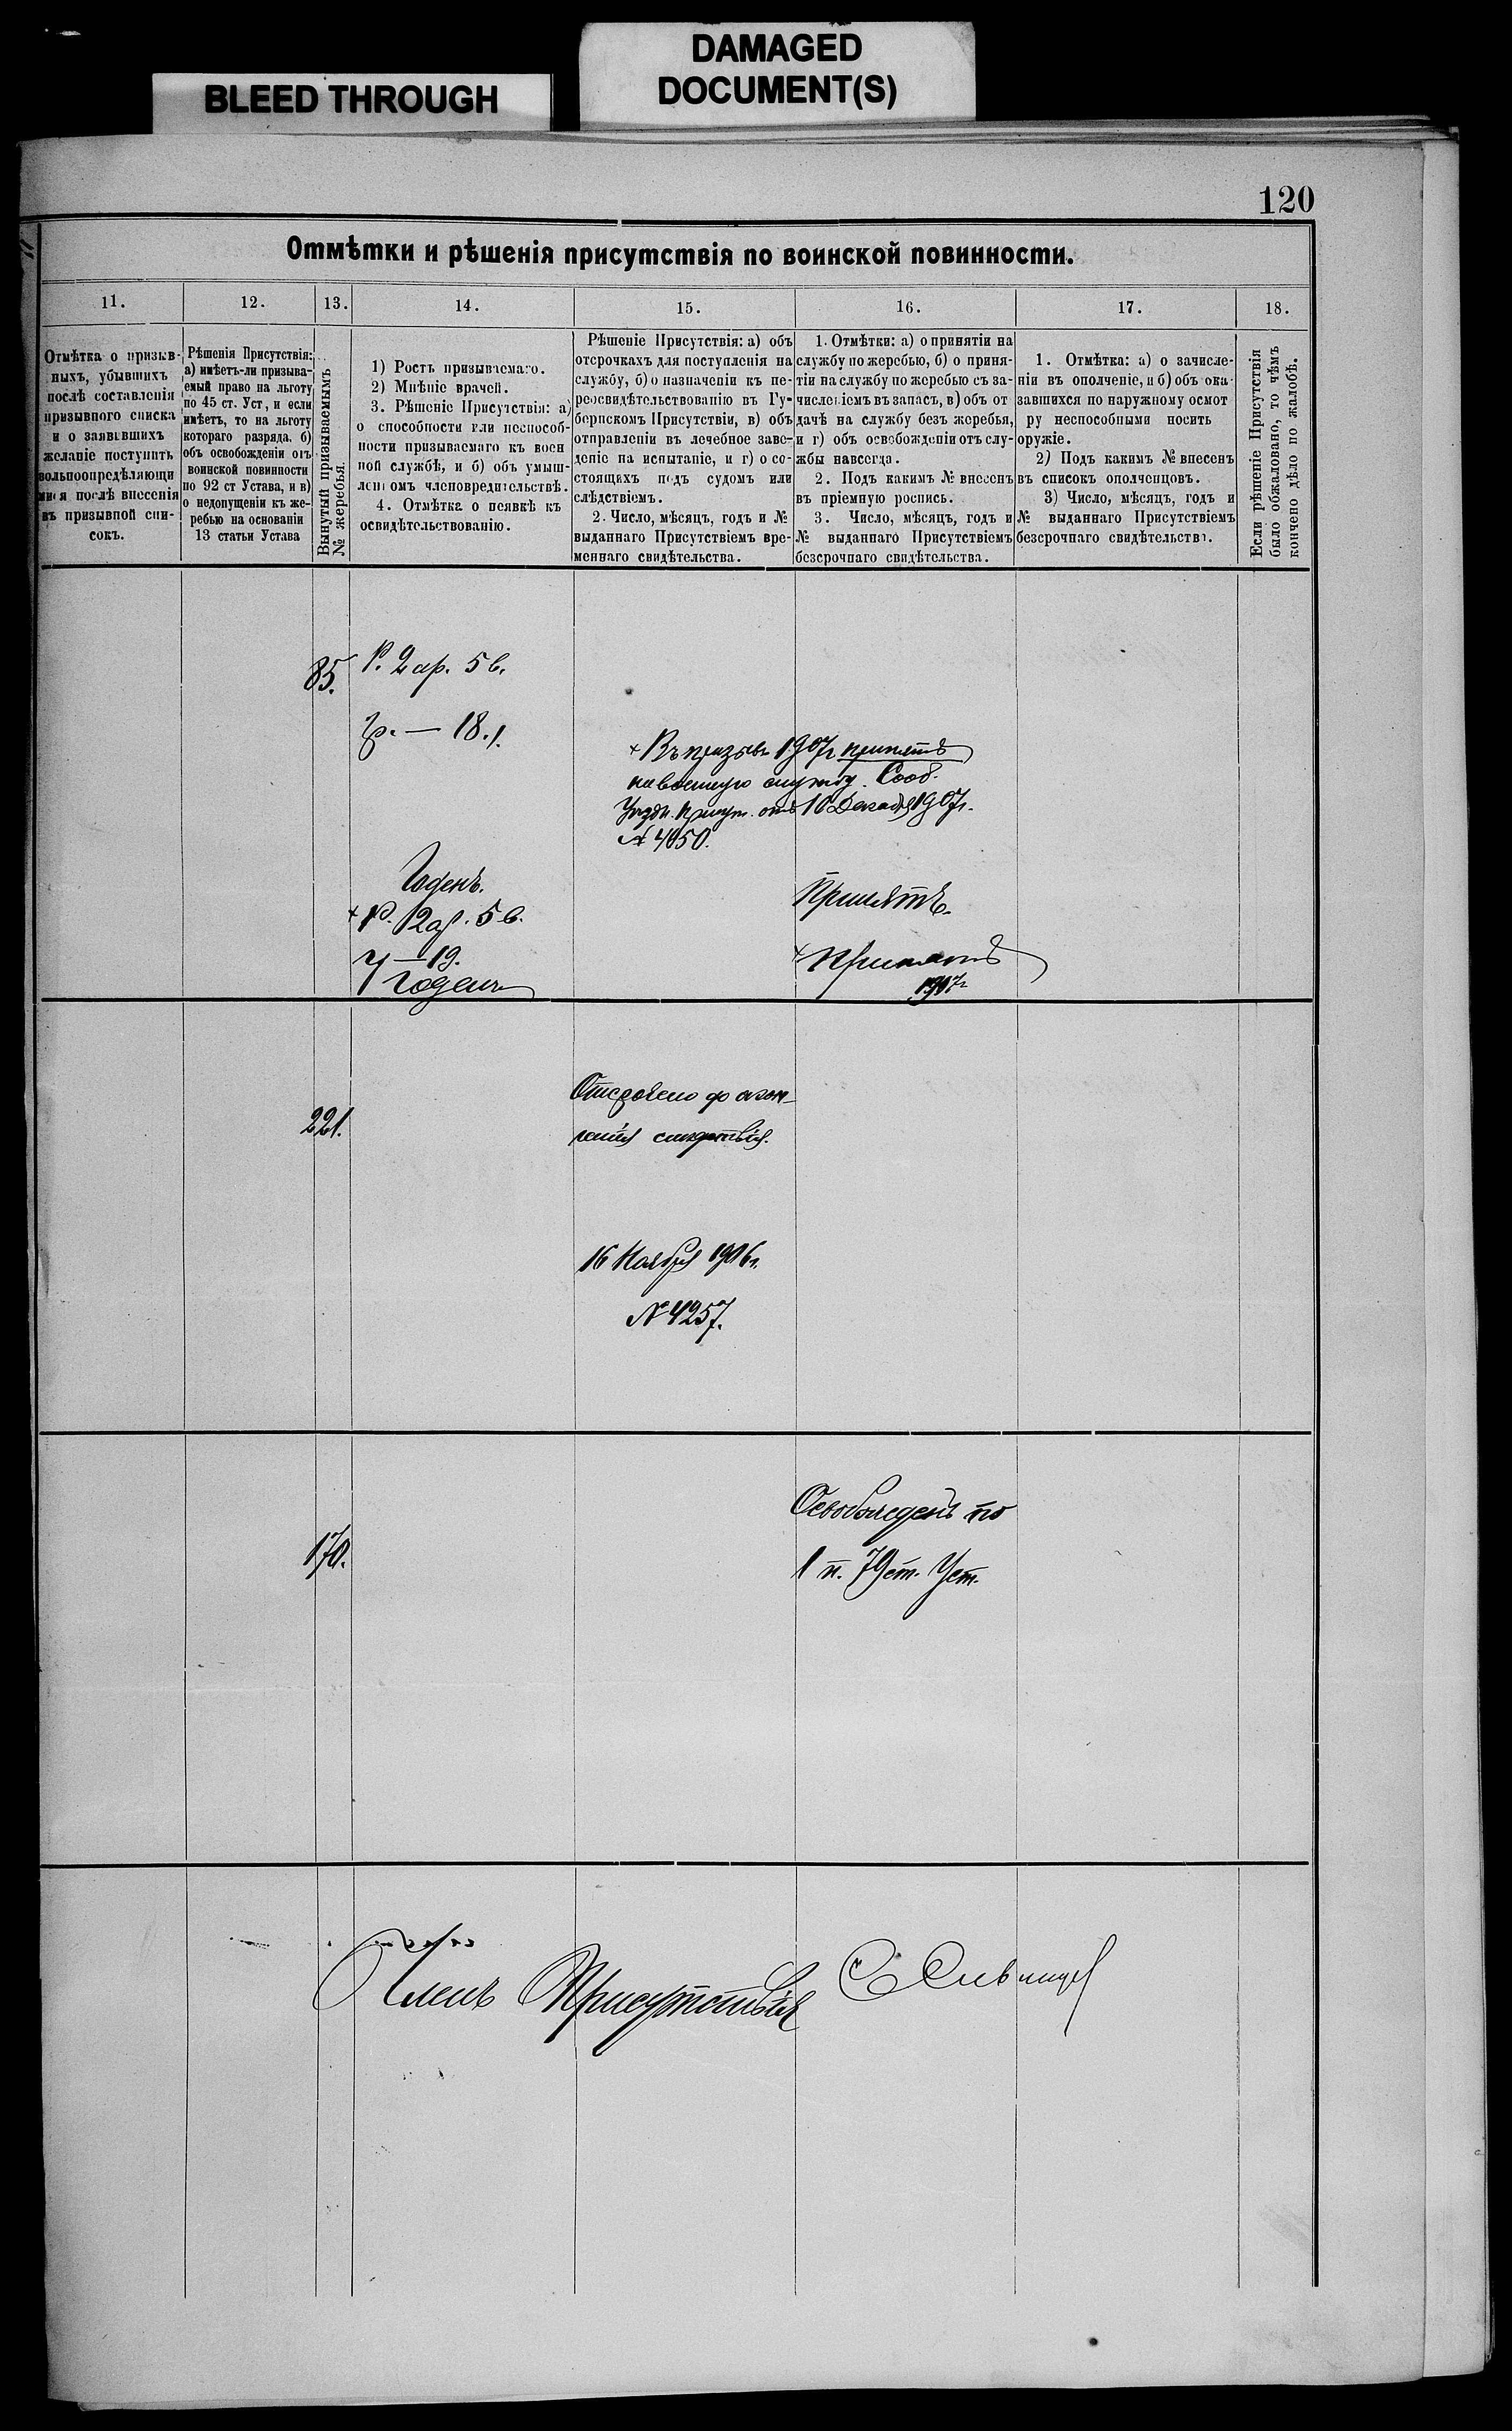 BLEED THROUGH
DAMAGED
DOCUMENT(S)
120
Отмѣтки и рѣшенія присутствія по воинской повинности.
11.
12.
13.
14.
15.
16.
17.
18.
Отмѣтка о призыв-
ныхъ, убывшихъ
послѣ составленія
призывного списка
и о заявившихъ
желаніе поступить
вольноопредѣляющи
мися послѣ внесенія
въ призывной спи-
сокъ.
Рѣшенія Присутствія:
а) имѣетъ-ли призыва-
емый право на льготу
по 45 ст. Уст, и если
имѣетъ, то на льготу
котораго разряда, б)
объ освобожденіи отъ
воинской повинности
по 92 ст Устава, и в)
о недопущеніи къ же-
ребью на основаніи
13 статьи Устава
Вынутый призываемымъ
№ жеребья.
1) Ростъ призываемаго.
2) Мнѣніе врачей.
3. Рѣшеніе Присутствія: а)
о способности или неспособ-
ности призываемаго къ воен
ной службѣ, и б) объ умыш-
ленномъ членовредительствѣ.
4. Отмѣтка о неявкѣ къ
освидѣтельствованію.
Рѣшеніе Присутствія: а) объ
отсрочкахъ для поступленія на
службу, б) о назначеніи къ пе-
реосвидѣтельствованію въ Гу-
бернскомъ Присутствіи, в) объ
отправленіи въ лечебное заве-
деніе на испытаніе, и г) о со-
стоящихъ подъ судомъ или
слѣдствіемъ.
2. Число, мѣсяцъ, годъ и №
выданнаго Присутствіемъ вре-
меннаго свидѣтельства.
1. Отмѣтки: а) о принятіи на
службу по жеребью, б) о приня-
тіи на службу по жеребью съ за-
численіемъ въ запасъ, в) объ от
дачѣ на службу безъ жеребья,
и г) объ освобожденіи отъ слу-
жбы навсегда.
2. Подъ какимъ № внесенъ
въ пріемную роспись.
3. Число, мѣсяцъ, годъ и
№ выданнаго Присутствіемъ
безсрочнаго свидѣтельства.
1. Отмѣтка: а) о зачисле-
ніи въ ополченіе, и б) объ ока-
завшихся по наружному осмот
ру неспособными носить
оружіе.
2) Подъ какимъ № внесенъ
въ списокъ ополченцовъ.
3) Число, мѣсяцъ, годъ и
№ выданнаго Присутствіемъ
безсрочнаго свидѣтельства.
Если рѣшеніе Присутствія
было обжаловано, то чѣмъ
кончено дѣло по жалобѣ.
85.
Р. 2 ар. 5 в.
Гр. — 18.
+ Въ призывъ 1907г принятъ
на военную службу. Сооб.
Уѣздн. Присут. отъ 10 Декабря 1907г.
№ 4050.
Годенъ.
+ Р. 2 ар. 5 в.
— 19.
Годенъ
Принятъ.
+ Принятъ
1907г
221.
Отсрочено до окон-
чанія слѣдствія.
16 Ноября 1906г.
№ 4257.
170.
Освобожденъ по
1 п. 79 ст. Уст.
Членъ Присутствія